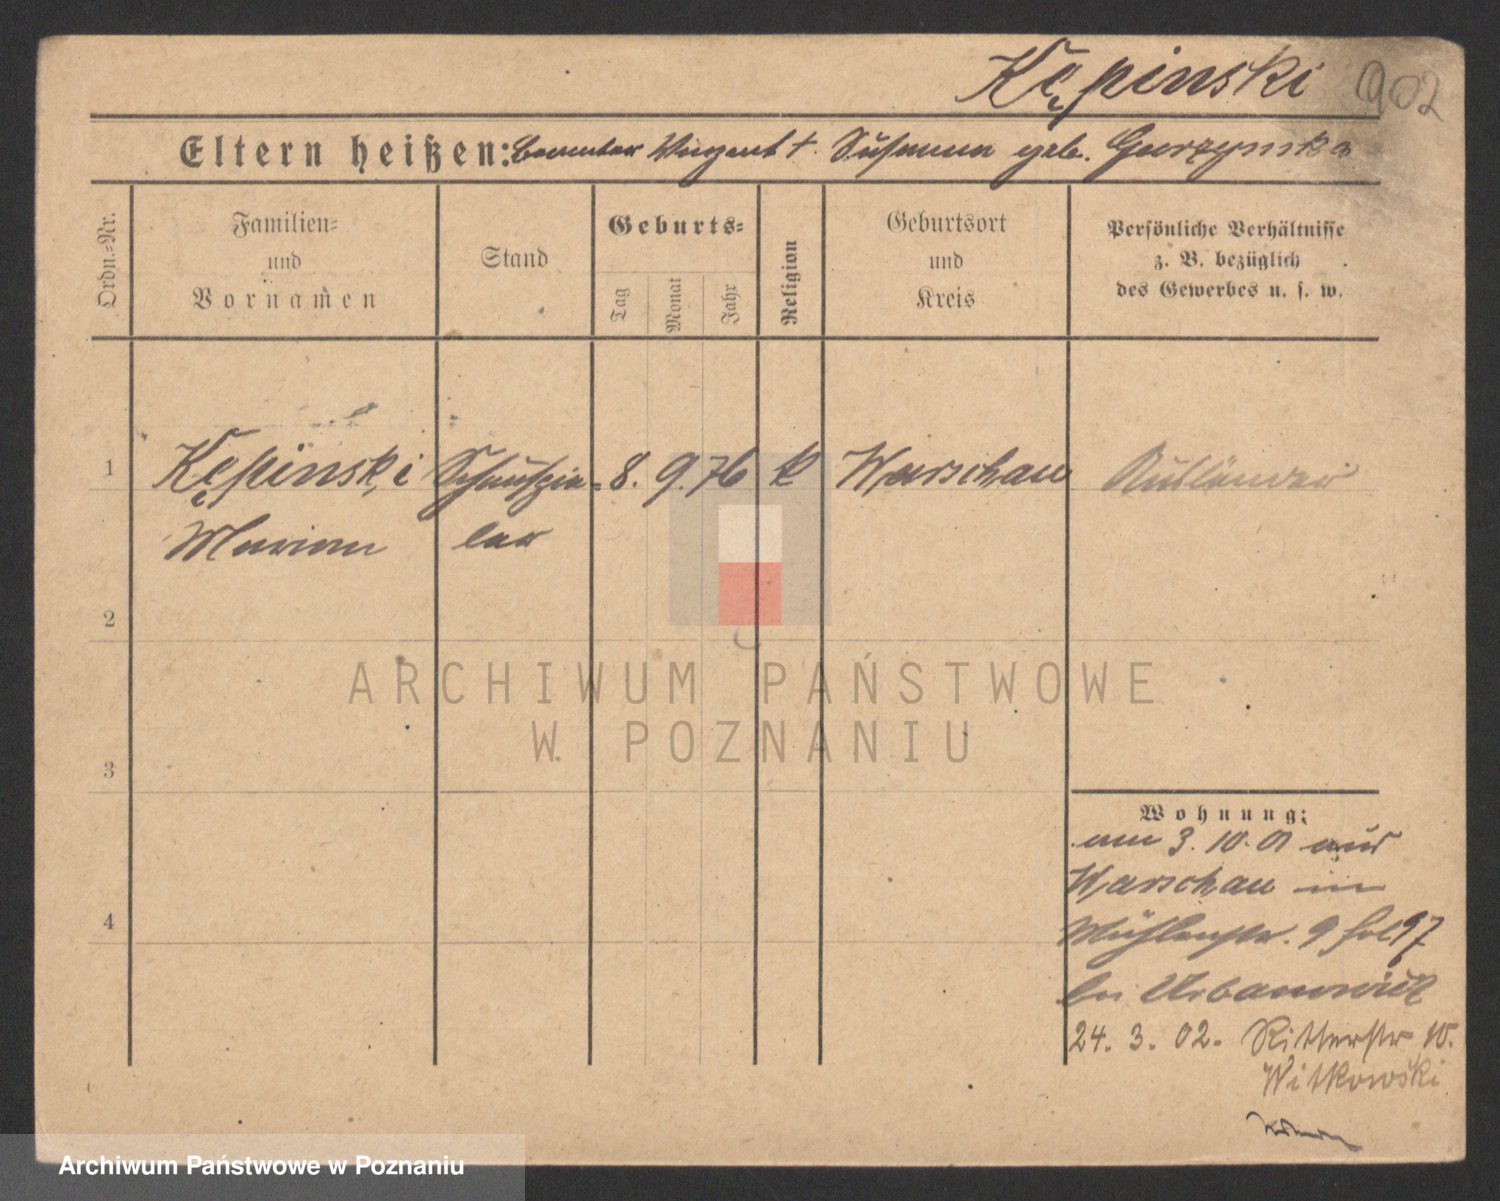 Kępinski 902
Eltern heißen: Beamter Vinzent † Susanna geb. Gurzynska
Ordn.-Nr.
Familien-
und
Vornamen
Stand
Geburts-
Tag
Monat
Jahr
Religion
Geburtsort
und
Kreis
Persönliche Verhältnisse
z. B. bezüglich
des Gewerbes u. s. w.
1 Kępinski Schauspie- 8. 9. 76 k Warschau Ausländer
Marian ler
2
3
4
ARCHIWUM PAŃSTWOWE
W POZNANIU
Wohnung:
am 3. 10. 01 aus
Warschau in
Mühlenstr. 9 fol 97
bei Urbanowicz
24. 3. 02. Ritterstr 10.
Witkowski
Archiwum Państwowe w Poznaniu